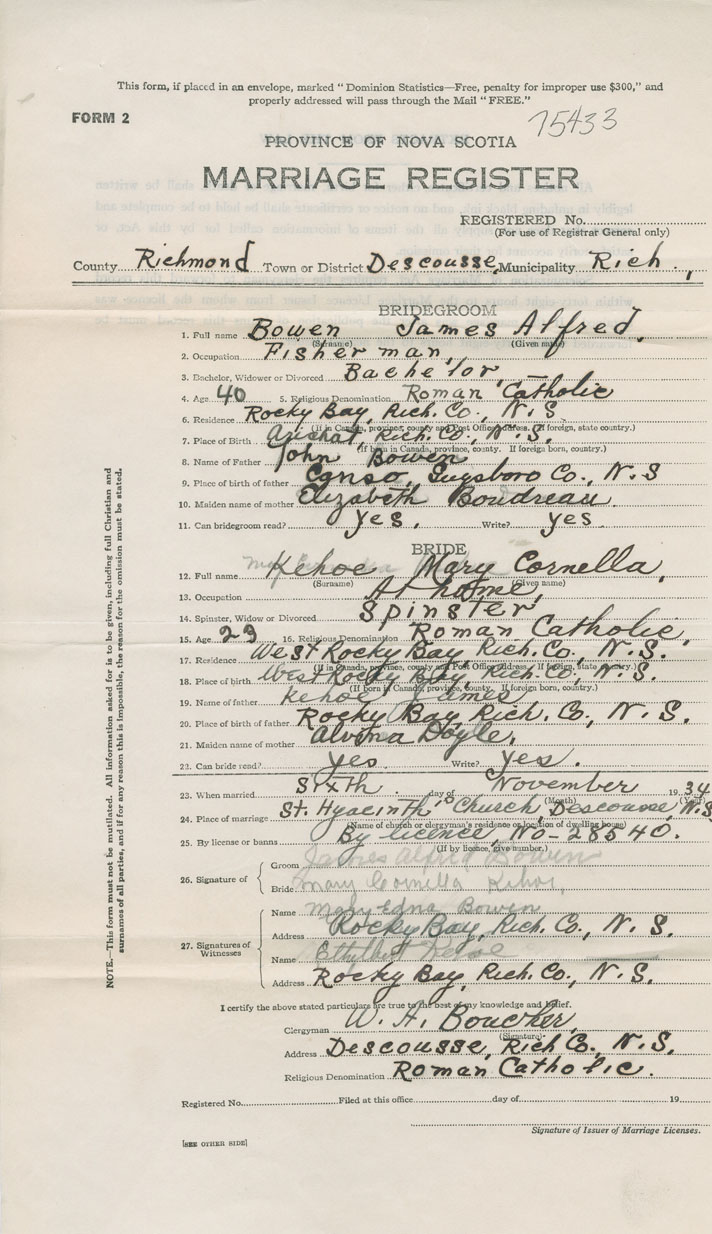 This form, if placed in an envelope, marked "Dominion Statistics—Free, penalty for improper use $300," and
properly addressed will pass through the Mail "FREE."
FORM 2
75433
PROVINCE OF NOVA SCOTIA
MARRIAGE REGISTER
REGISTERED No.
(For use of Registrar General only)
County Richmond Town or District Descousse, Municipality Rich.,
BRIDEGROOM
1. Full name Bowen James Alfred.
(Surname) (Given name)
2. Occupation Fisherman,
3. Bachelor, Widower or Divorced Bachelor,
4. Age 40 5. Religious Denomination Roman Catholic
6. Residence Rocky Bay, Rich. Co., N. S
(If in Canada, province, county and Post Office address. If foreign, state country.)
7. Place of Birth Arichat, Rich. Co., N. S.
(If born in Canada, province, county. If foreign born, country.)
8. Name of Father John Bowen
9. Place of birth of father Canso, Guysboro Co., N. S
10. Maiden name of mother Elizabeth Boudreau.
11. Can bridegroom read? yes. Write? yes
BRIDE
12. Full name Kehoe Mary Cornella,
(Surname) (Given name)
13. Occupation At home,
14. Spinster, Widow or Divorced Spinster
15. Age 29 16. Religious Denomination Roman Catholic,
17. Residence West Rocky Bay, Rich. Co., N. S.
(If in Canada, province, county and Post Office address. If foreign, state country.)
18. Place of birth West Rocky Bay, Rich. Co., N. S.
(If born in Canada, province, county. If foreign born, country.)
19. Name of father Kehoe James
20. Place of birth of father Rocky Bay, Rich. Co., N. S.
21. Maiden name of mother Alvina Doyle,
22. Can bride read? yes Write? yes.
23. When married Sixth day of November 1934
(Month) (Year)
24. Place of marriage St. Hyacinth's Church, Descousse, N.S
(Name of church or clergyman's residence or location of dwelling house)
25. By license or banns By licence, No-28540.
(If by licence, give number.)
26. Signature of
Groom James Alfred Bowen
Bride Mary Cornella Kehoe,
27. Signatures of Witnesses
Name Mary Edna Bowen
Address Rocky Bay, Rich. Co., N. S.
Name Ethylbert Kehoe
Address Rocky Bay, Rich. Co., N. S.
I certify the above stated particulars are true to the best of my knowledge and belief.
Clergyman W. H. Boucher,
(Signature)
Address Descousse, Rich Co., N. S.
Religious Denomination Roman Catholic.
Registered No. Filed at this office day of 19
Signature of Issuer of Marriage Licenses.
[SEE OTHER SIDE]
NOTE.—This form must not be mutilated. All information asked for is to be given, including full Christian and
surnames of all parties, and if for any reason this is impossible, the reason for the omission must be stated.